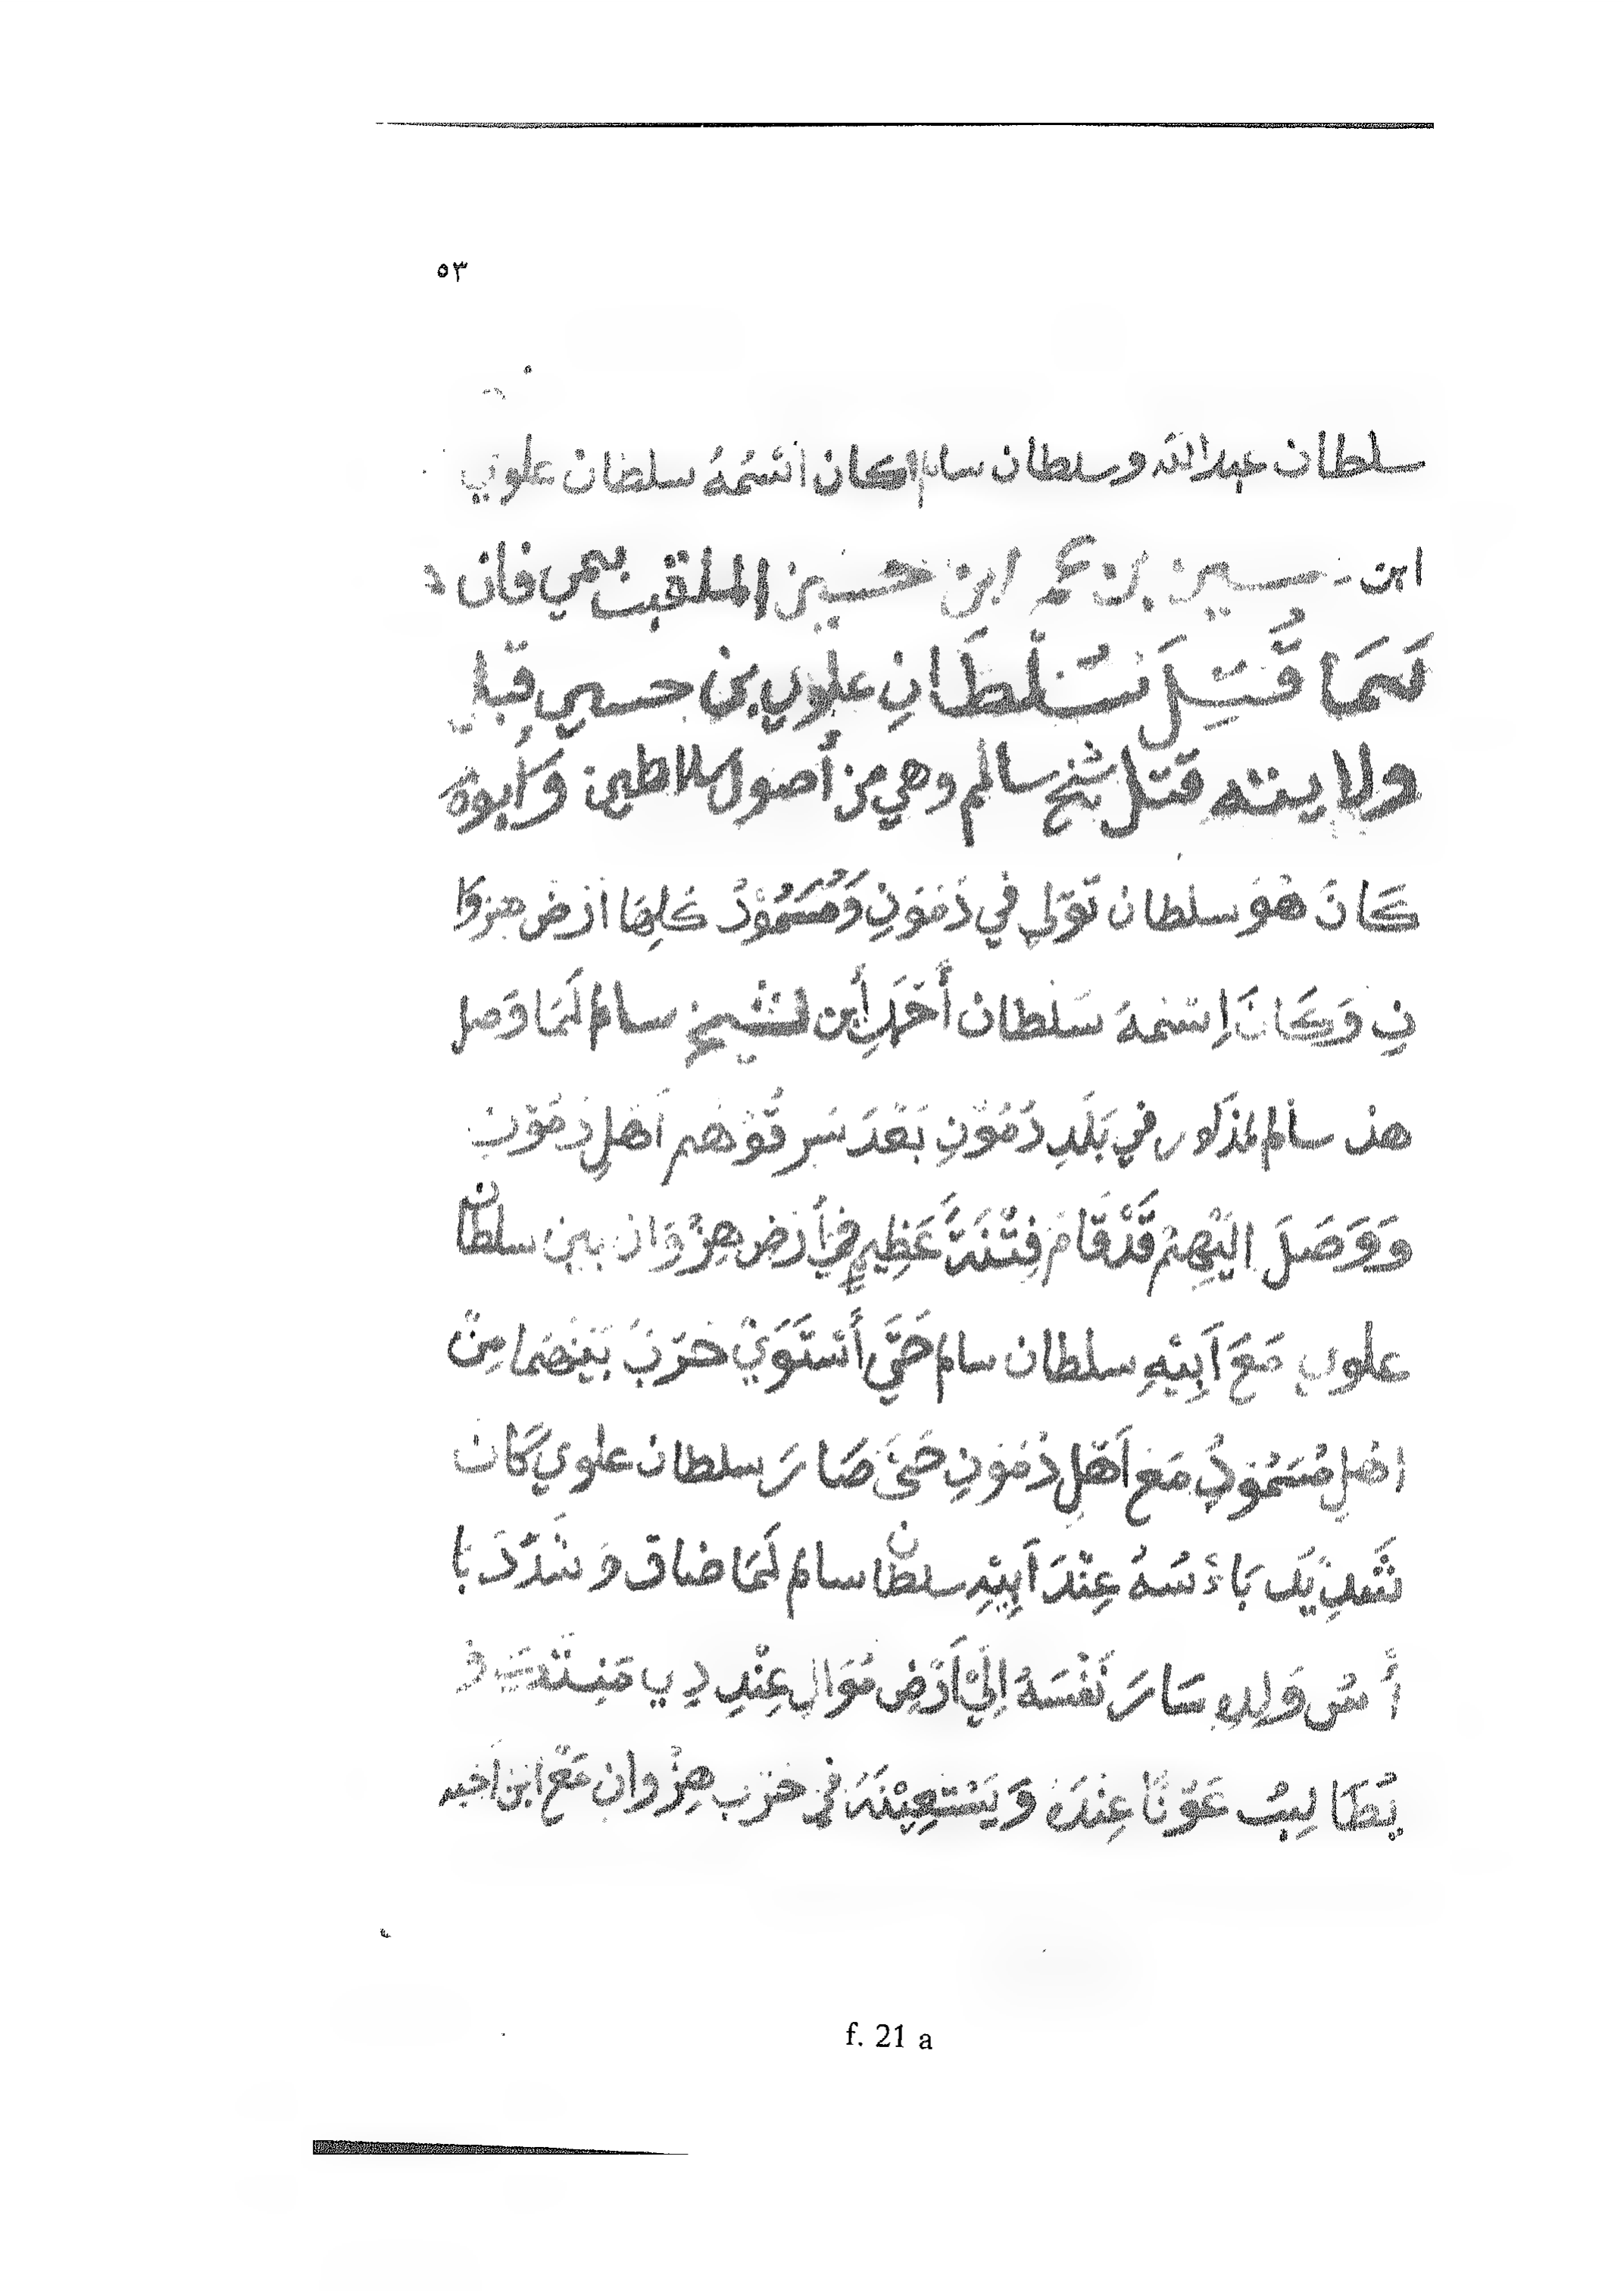 ٥٣
سلطان عبدالله وسلطان سالم كان اسْمُهُ سلطان علوي
ابن حسين بن ابن حسين الملقب فان
لَمَا قُتِلَ سُلْطَانِ علوي بن حسين قبل
ولا ينته قتل شيخ سالم وهي من أصول سلاطين وَأبوهُ
كَانَ هُوَ سلطان تَوَلي في دُمُوْنِ وَمُسَمُوْدُ كُلِهَا ارْض هزوا
نِ وَكَانَ اِسْمهُ سَلطان أَحْمَدِ أبن لشيخ سالم لَمَا وَصل
هذ سالم لمذكور في بَلَدِ دُمُوْنِ بَعْدَ سَرقُوْهُم اَهْلِ دُمُوْن
وَوَصَلَ اِلَيْهِمْ قَدْ قَامَ فِتْنَةً عَظِيمٍ في أَرْضِ هِزْوَان بين سلطان
علوي مَعَ اَبِيْهِ سلطان سالم حَتَّى أسْتَوَيْ حَرْبَ بَيْنهُمَا مِنْ
اهْلِ مُسَمُوْدُ مَعَ اَهْلِ دُمُوْنِ حَتَىَّ صَارَ سلطان علوي كَان
شَدِيْدَ بَاءْسُهُ عِنْدَ اَبِيْهِ سلطان سالم لَمَا ضاق وَ شَدَّدَ بَا
أسُ وَلِدِهِ سَارَ نَفْسَهُ اِلَيْ اَرْضِ مُوَالِ عِنْدِ دِي و
يُطَالِبُ عَوْنًا عِنْدَهُ وَيَسْتَعِيْنَهُ في حَرْب هِزْوان مَعَ ابن اَخيه
f. 21 a